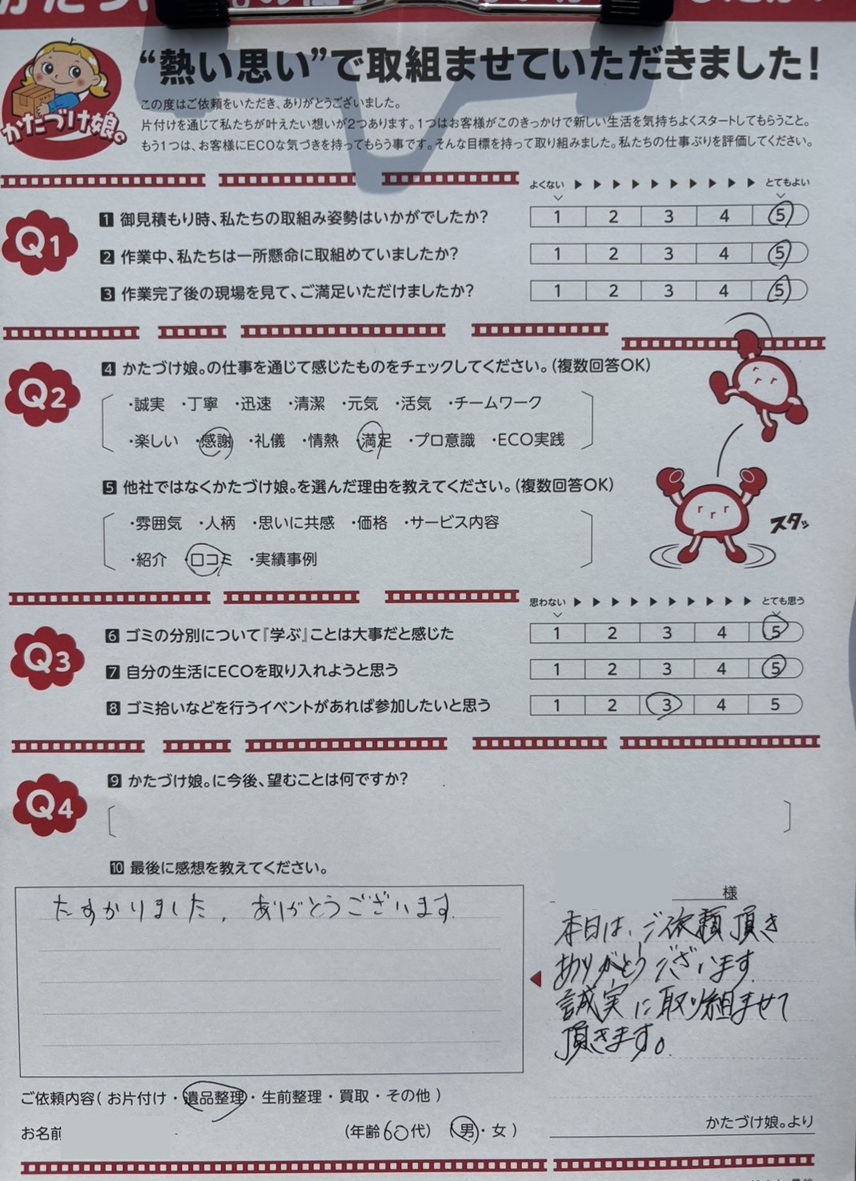 かたづけ娘。
“熱い思い”で取組ませていただきました！
この度はご依頼をいただき、ありがとうございました。
片付けを通じて私たちが叶えたい想いが2つあります。1つはお客様がこのきっかけで新しい生活を気持ちよくスタートしてもらうこと。
もう1つは、お客様にECOな気づきを持ってもらう事です。そんな目標を持って取り組みました。私たちの仕事ぶりを評価してください。
よくない ▶ ▶ ▶ ▶ ▶ ▶ ▶ ▶ ▶ ▶ とてもよい
Q1
1 御見積もり時、私たちの取組み姿勢はいかがでしたか? 1 2 3 4 5
2 作業中、私たちは一所懸命に取組めていましたか? 1 2 3 4 5
3 作業完了後の現場を見て、ご満足いただけましたか? 1 2 3 4 5
Q2
4 かたづけ娘。の仕事を通じて感じたものをチェックしてください。(複数回答OK)
・誠実 ・丁寧 ・迅速 ・清潔 ・元気 ・活気 ・チームワーク
・楽しい ・感謝 ・礼儀 ・情熱 ・満足 ・プロ意識 ・ECO実践
5 他社ではなくかたづけ娘。を選んだ理由を教えてください。(複数回答OK)
・雰囲気 ・人柄 ・思いに共感 ・価格 ・サービス内容
・紹介 ・口コミ ・実績事例
スタッ
思わない ▶ ▶ ▶ ▶ ▶ ▶ ▶ ▶ ▶ ▶ とても思う
Q3
6 ゴミの分別について『学ぶ』ことは大事だと感じた 1 2 3 4 5
7 自分の生活にECOを取り入れようと思う 1 2 3 4 5
8 ゴミ拾いなどを行うイベントがあれば参加したいと思う 1 2 3 4 5
Q4
9 かたづけ娘。に今後、望むことは何ですか?
10 最後に感想を教えてください。
たすかりました、ありがとうございます。
様
本日は、ご依頼頂き
ありがとうございます
誠実に取り組ませて
頂きます。
かたづけ娘。より
ご依頼内容( お片付け・遺品整理・生前整理・買取・その他 )
お名前 (年齢60代) (男・女)